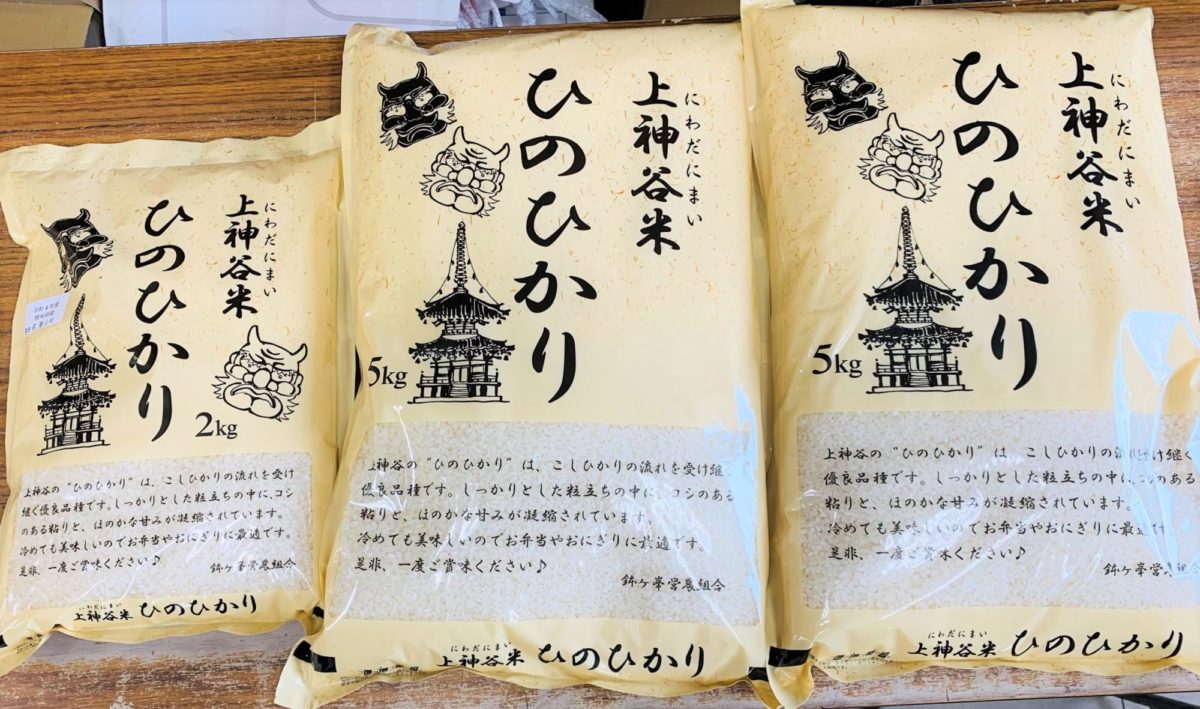 にわだにまい
上神谷米
ひのひかり
2kg
上神谷の"ひのひかり"は、こしひかりの流れを受け
継ぐ優良品種です。しっかりとした粒立ちの中に、コシ
のある粘りと、ほのかな甘みが凝縮されています。
冷めても美味しいのでお弁当やおにぎりに最適です。
是非、一度ご賞味ください♪
鉾ヶ峯営農組合
にわだにまい
上神谷米 ひのひかり
にわだにまい
上神谷米
ひのひかり
5kg
上神谷の"ひのひかり"は、こしひかりの流れを受け継ぐ
優良品種です。しっかりとした粒立ちの中に、コシのある
粘りと、ほのかな甘みが凝縮されています。
冷めても美味しいのでお弁当やおにぎりに最適です。
是非、一度ご賞味ください♪
鉾ヶ峯営農組合
にわだにまい
上神谷米 ひのひかり
にわだにまい
上神谷米
ひのひかり
5kg
上神谷の"ひのひかり"は、こしひかりの流れを受け継ぐ
優良品種です。しっかりとした粒立ちの中に、コシのある
粘りと、ほのかな甘みが凝縮されています。
冷めても美味しいのでお弁当やおにぎりに最適です
是非、一度ご賞味ください♪
鉾ヶ峯営農組合
にわだにまい
上神谷米 ひのひかり